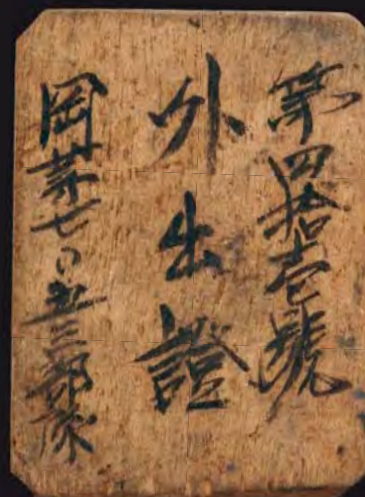 第四拾壱號
外出證
岡第七〇五三部隊